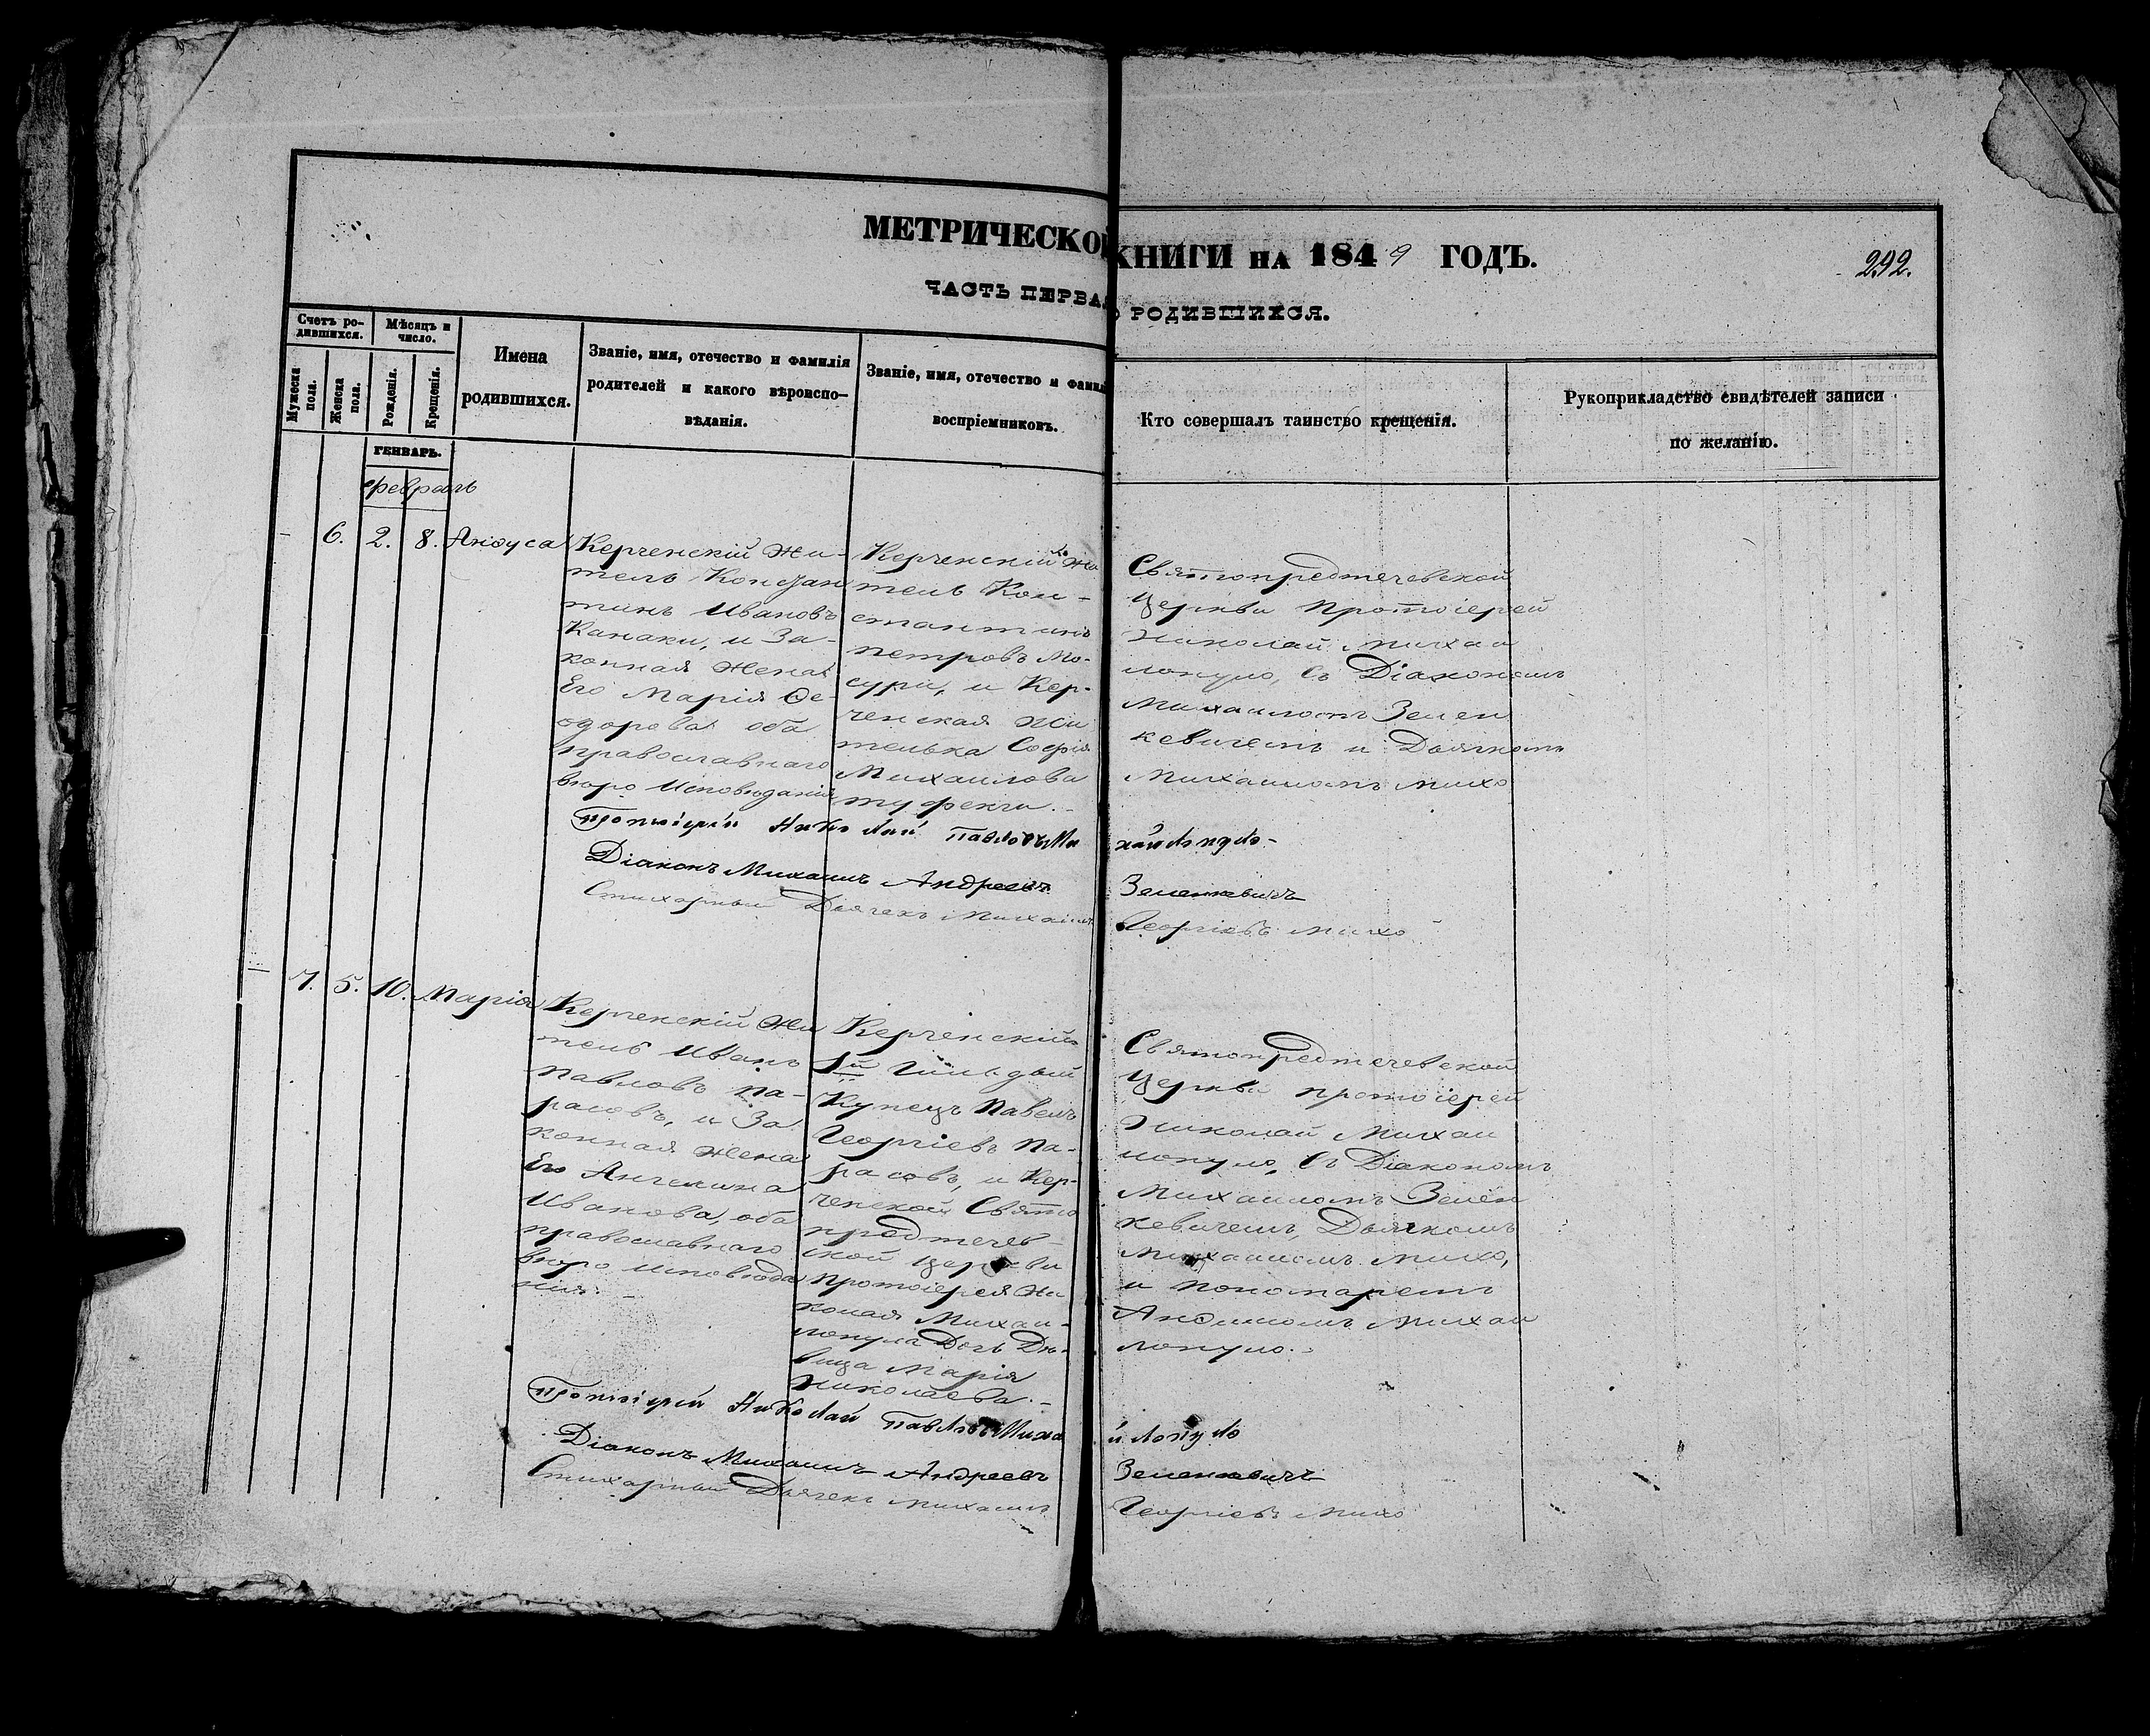 МЕТРИЧЕСКОЙ КНИГИ НА 1849 ГОДЪ.
292.
ЧАСТЬ ПЕРВАЯ О РОДИВШИХСЯ.
Счетъ ро-
дившихся.
Мужеска
пола.
Женска
пола.
Мѣсяцъ и
число.
Рожденія.
Крещенія.
Имена
родившихся.
Званіе, имя, отечество и фамилія
родителей и какого вѣроиспо-
вѣданія.
Званіе, имя, отечество и фамил
воспріемниковъ.
Кто совершалъ таинство крещенія.
Рукоприкладство свидѣтелей записи
по желанію.
ГЕНВАРЬ.
февраль
6. 2. 8.
Керченскій Жи-
тель Констан
тинъ Ивановъ
Канаки, и За-
конная Жена
Его Марія Ѳе-
одорова оба
православнаго
вѣро Исповѣданія
Керченскій Жи
тель Кон-
стантинъ
петровъ Мо-
сури, и Кер-
ченская жи
телька Софія
Михаилова
туфекчи.-
Святопредтечевской
Церкви Протоіерей
Николай Михаи
лопуло, съ Діакономъ
Михаиломъ Зелен
кевичемъ и Дьячкомъ
Михаиломъ михо
Протоіерей Николай Павловъ Ми хайлопуло-
Діаконъ Михаилъ Андреевъ Зеленкевичъ
Стихарный Дьячекъ Михаилъ Георгіевъ михо
7. 5. 10. Марія
Керченскій Жи
тель Иванъ
Павловъ Па-
расовъ, и За
конная жена
Его Ангелина
Иванова, оба
православнаго
вѣро исповѣда
нія. -
Керченскій
1й Гильдыи
Купецъ Павелъ
Георгіевъ Па-
расовъ, и Кер-
ченской Свято
предтечев-
ской церкви
протоіерея Ни
колая Михаи-
лопула Дочь Дѣ-
вица Марія
Николаева.-
Святопредтечевской
Церкви протоіерей
Николай Михаи
лопуло, съ Діакономъ
Михаиломъ Зелен
кевичемъ, Дьячкомъ
Михаиломъ михо,
и пономаремъ
Михаи
лопуло.-
Протоіерей Николай Павловъ Миха йлопуло
Діаконъ Михаилъ Андреевъ Зеленкевичъ
Стихарный Дьячекъ михаилъ Георгіевъ михо